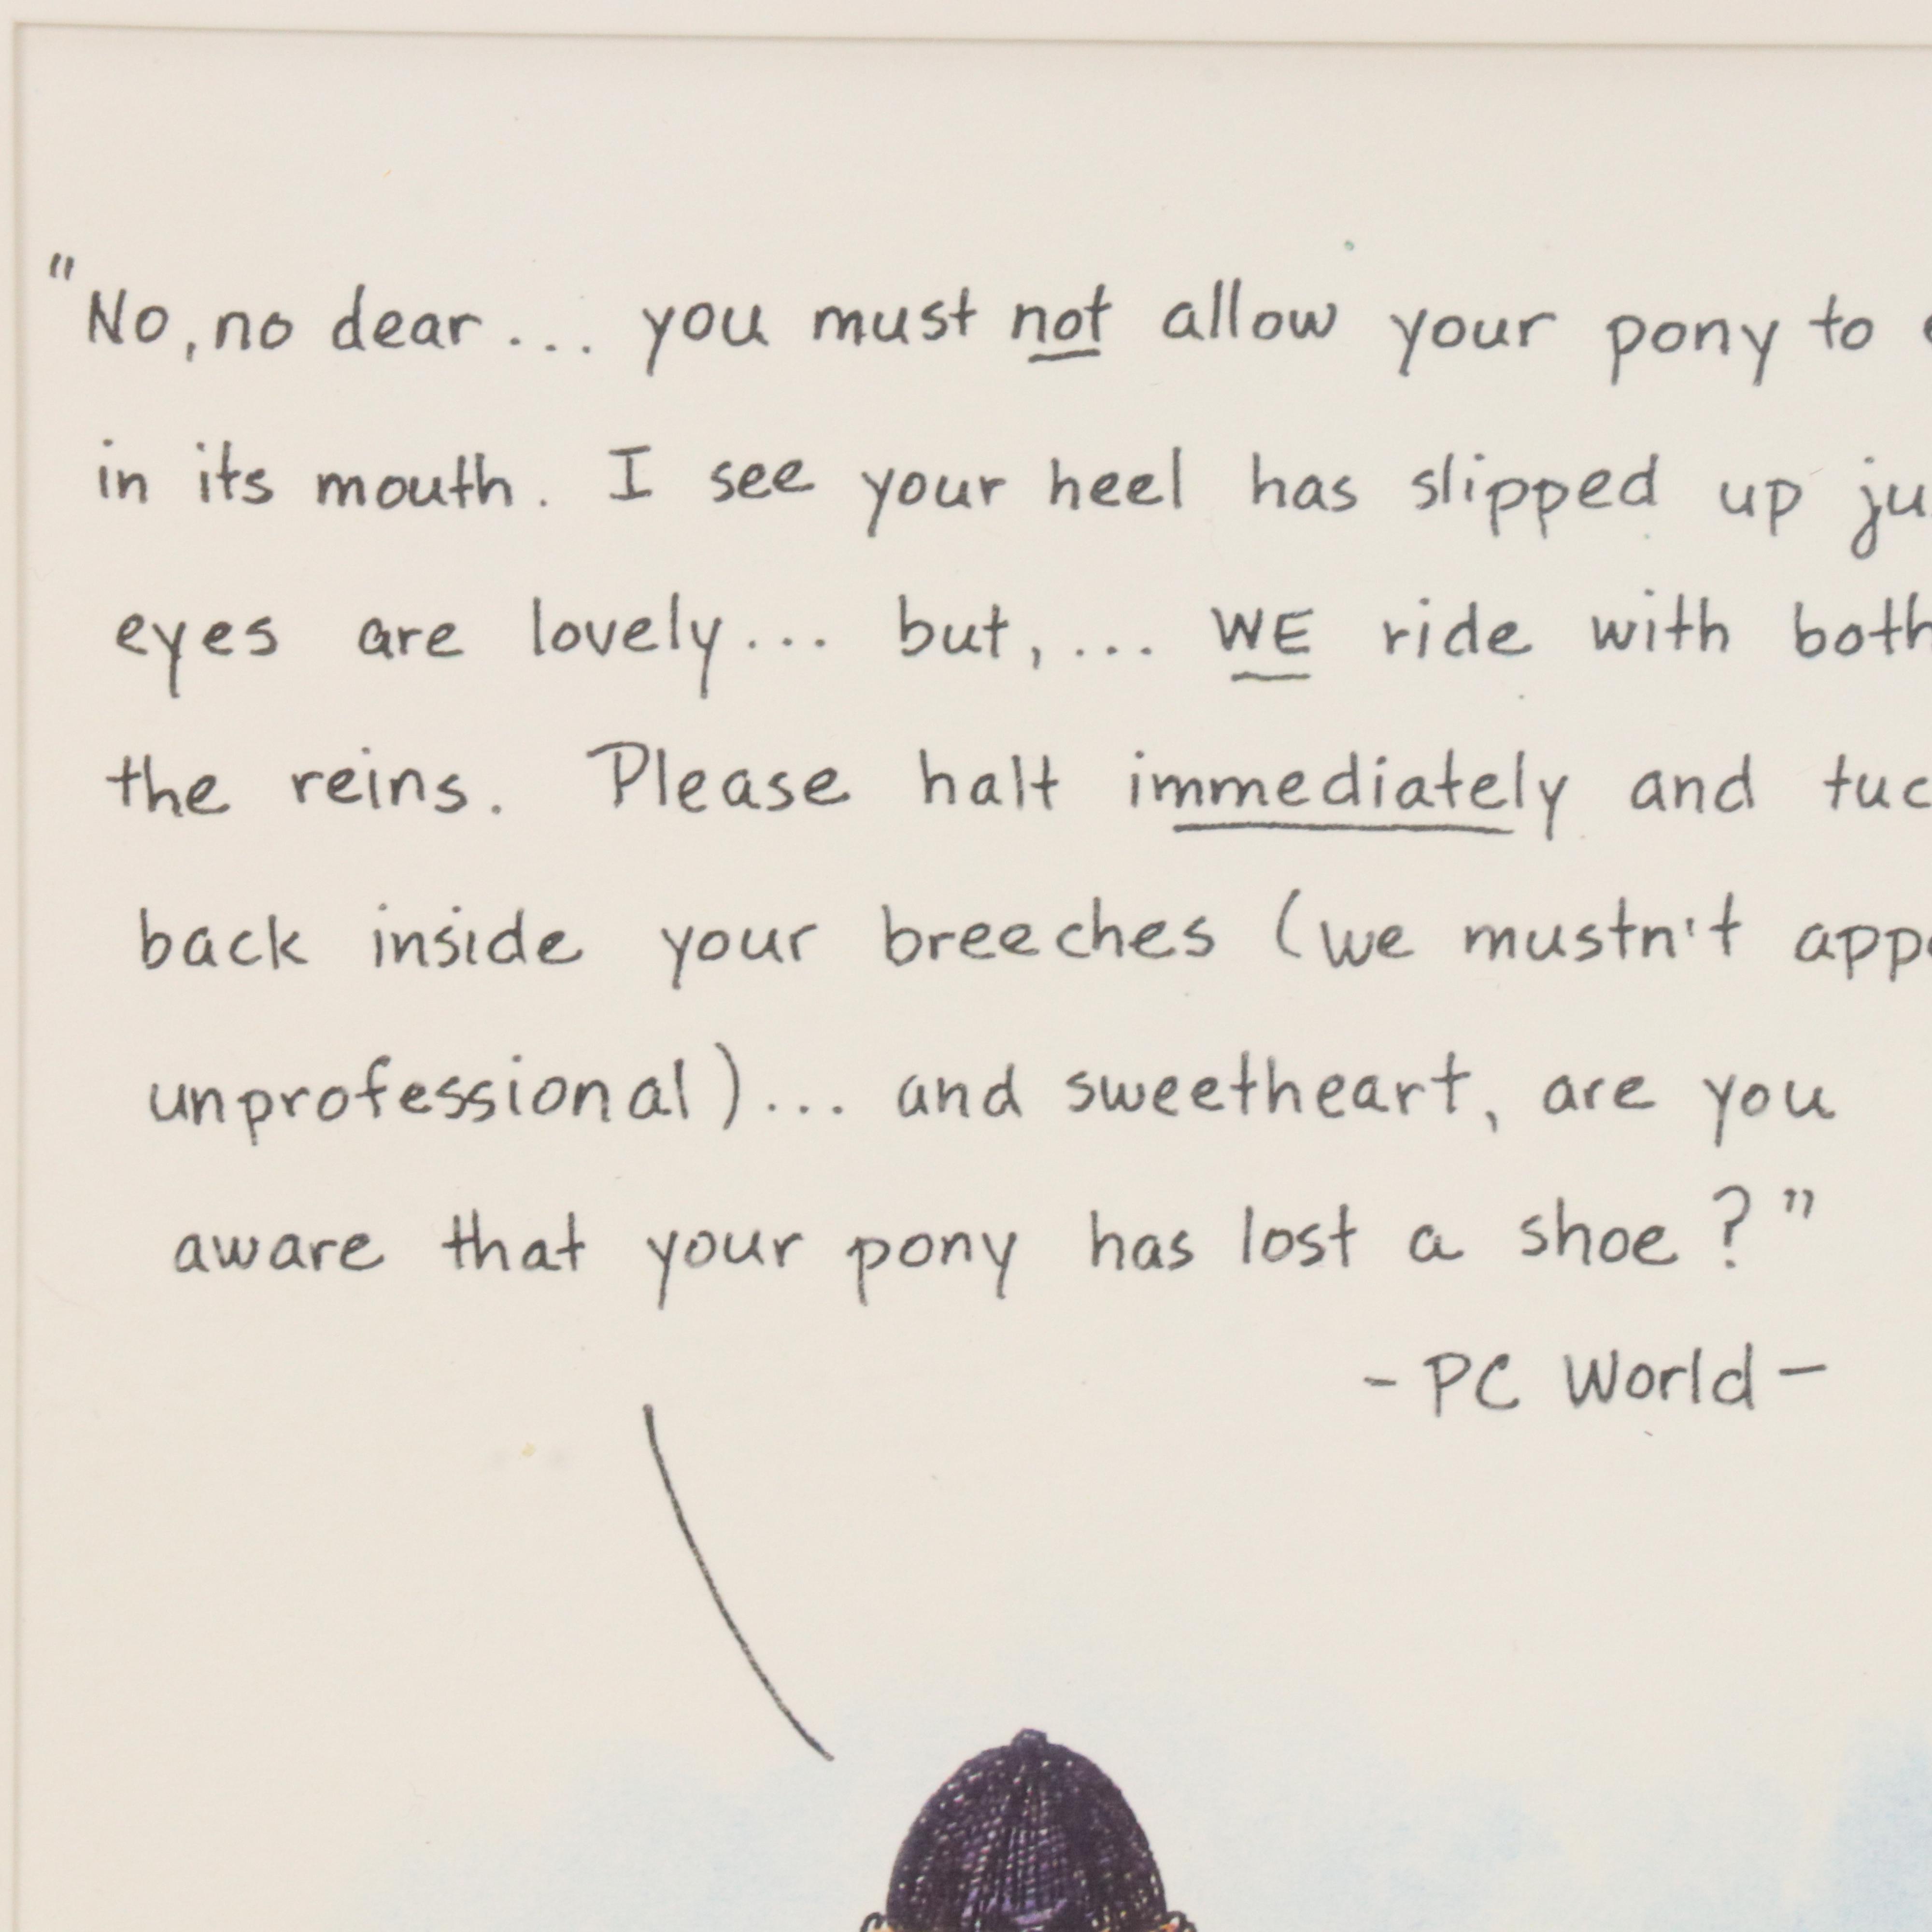 "No, no dear... you must not allow your pony to
in its mouth. I see your heel has slipped up
eyes are lovely... but,... WE ride with both
the reins. Please halt immediately and
back inside your breeches (we mustn't
unprofessional)... and sweetheart, are you
aware that your pony has lost a shoe?"
- PC World -